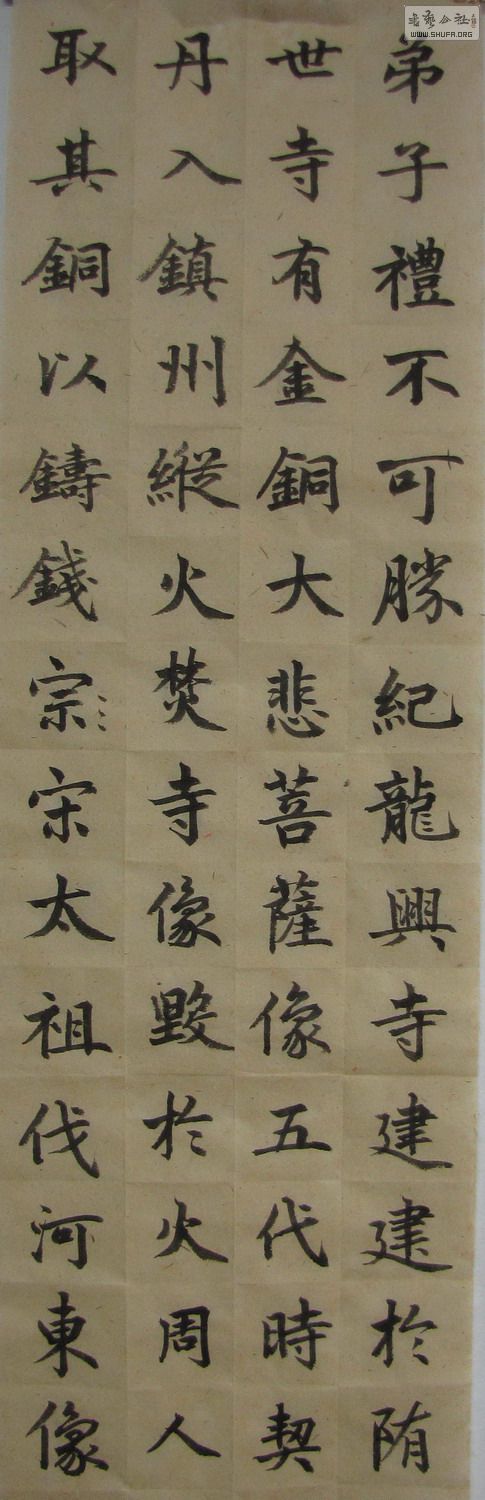 弟子禮不可勝紀龍興寺建建於陏
世寺有金銅大悲菩薩像五代時契
丹入鎮州縱火焚寺像毀於火周人
取其銅以鑄錢宗〻宋太祖伐河東像
書藝公社
WWW.SHUFA.ORG